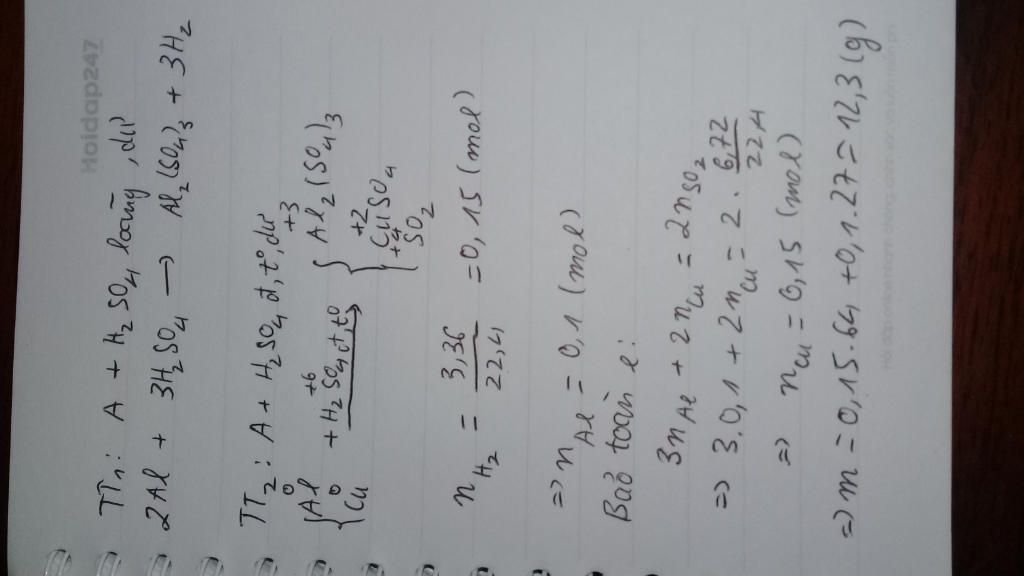 Hoidap247
TN₁: A + H₂SO₄ loãng, dư
2Al + 3H₂SO₄ → Al₂(SO₄)₃ + 3H₂
TN₂: A + H₂SO₄ đ, t°, dư
{Al⁰ Cu⁰ + H₂S⁺⁶O₄ đ, t° → {Al₂⁺³(SO₄)₃
Cu⁺²SO₄
S⁺⁴O₂
n_H₂ = 3,36/22,4 = 0,15 (mol)
=> n_Al = 0,1 (mol)
Bảo toàn e:
3n_Al + 2n_Cu = 2n_SO₂
=> 3.0,1 + 2n_Cu = 2. 6,72/22,4
=> n_Cu = 0,15 (mol)
=> m = 0,15.64 + 0,1.27 = 12,3 (g)